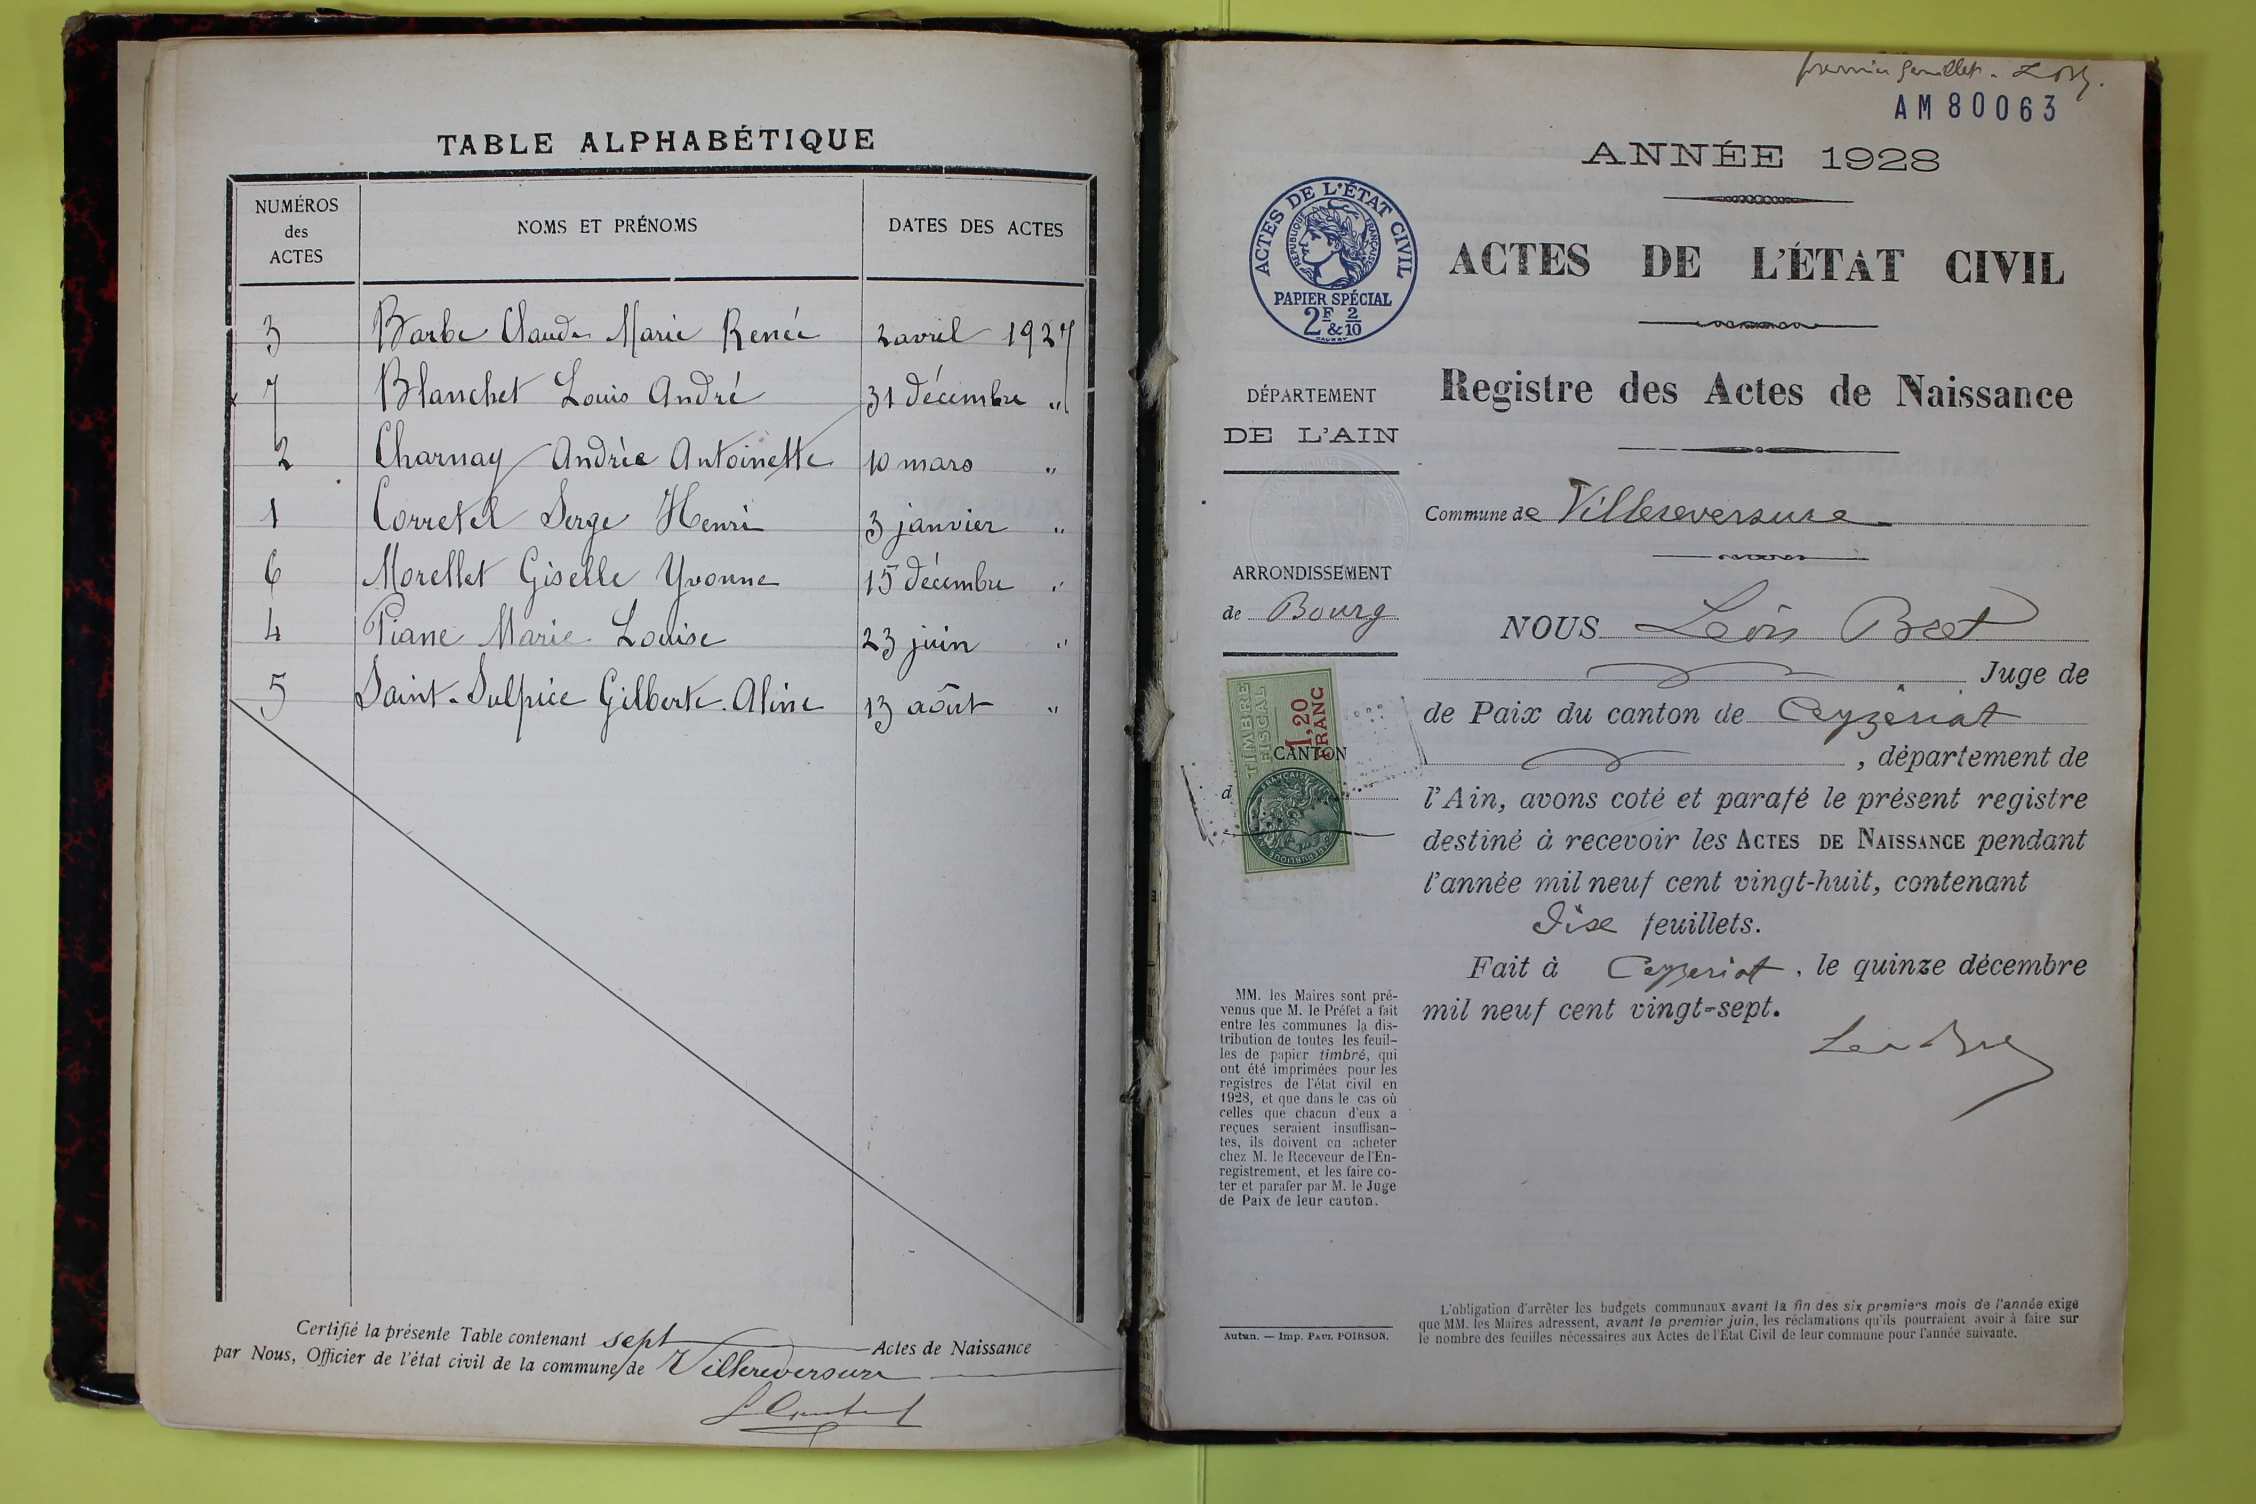 TABLE ALPHABÉTIQUE
NUMÉROS
des
ACTES
NOMS ET PRÉNOMS
DATES DES ACTES
3 Barbe Claude Marie Renée 2 avril 1927
7 Blanchet Louis André 31 décembre "
2 Charnay Andrée Antoinette 10 mars "
1 Corretel Serge Henri 3 janvier "
6 Morellet Giselle Yvonne 15 décembre "
4 Piane Marie Louise 23 juin "
5 Saint-Sulpice Gilberte Aline 13 août "
Certifié la présente Table contenant sept Actes de Naissance
par Nous, Officier de l'état civil de la commune de Villereversure
premier feuillet.
AM 80063
ANNÉE 1928
ACTES DE L'ÉTAT CIVIL
RÉPUBLIQUE FRANÇAISE
PAPIER SPÉCIAL
2F & 2/10
ACTES DE L'ÉTAT CIVIL
Registre des Actes de Naissance
DÉPARTEMENT
DE L'AIN
Commune de Villereversure
ARRONDISSEMENT
de Bourg
NOUS Léon Bret
Juge de
de Paix du canton de Ceyzériat
, département de
l'Ain, avons coté et parafé le présent registre
destiné à recevoir les ACTES DE NAISSANCE pendant
l'année mil neuf cent vingt-huit, contenant
Dix feuillets.
Fait à Ceyzeriat, le quinze décembre
mil neuf cent vingt-sept.
Léon Bret
TIMBRE
FISCAL
1,20
FRANC
CANTON
d
MM. les Maires sont pré-
venus que M. le Préfet a fait
entre les communes la dis-
tribution de toutes les feuil-
les de papier timbré, qui
ont été imprimées pour les
registres de l'état civil en
1928, et que dans le cas où
celles que chacun d'eux a
reçues seraient insuffisan-
tes, ils doivent en acheter
chez M. le Receveur de l'En-
registrement, et les faire co-
ter et parafer par M. le Juge
de Paix de leur canton.
Autun. — Imp. PAUL POIRSON.
L'obligation d'arrêter les budgets communaux avant la fin des six premiers mois de l'année exige
que MM. les Maires adressent, avant le premier juin, les réclamations qu'ils pourraient avoir à faire sur
le nombre des feuilles nécessaires aux Actes de l'État Civil de leur commune pour l'année suivante.